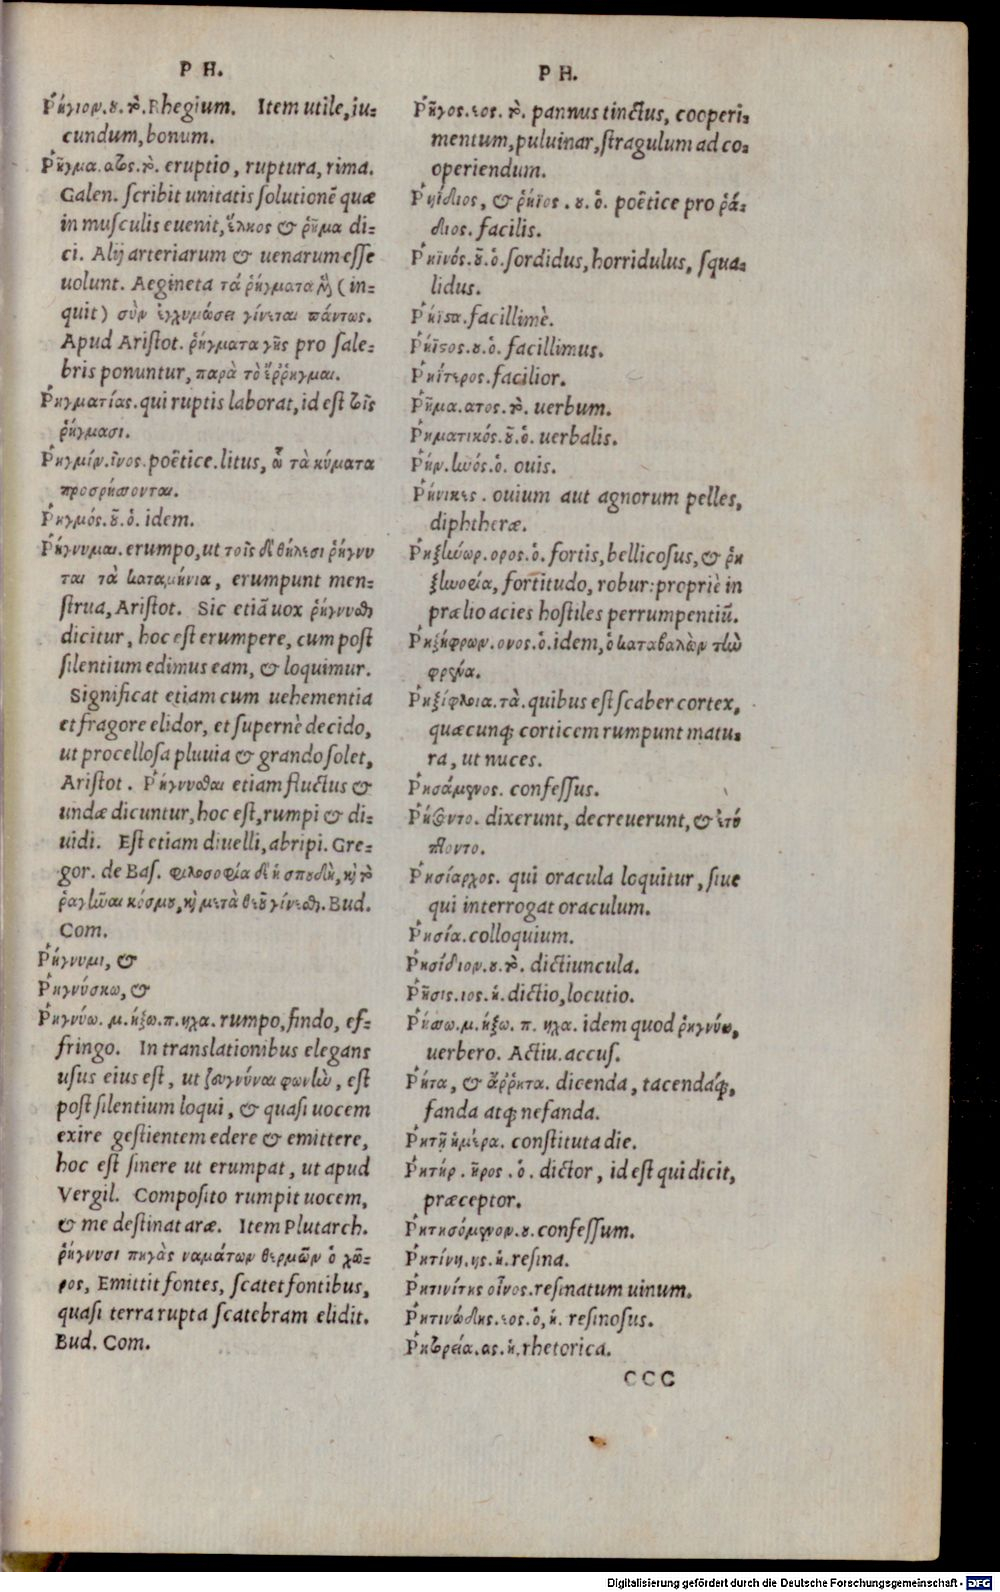 Ρ Η.
Ῥήγιον. ου. τὸ. Rhegium. Item utile, iu-
cundum, bonum.
Ῥῆγμα. ατος. τὸ. eruptio, ruptura, rima.
Galen. scribit unitatis solutionē quæ
in musculis euenit, ἕλκος & ῥῆγμα di-
ci. Alij arteriarum & uenarum esse
uolunt. Aegineta τὰ ῥήγματα δὲ (in-
quit) σὺν ἐγχυμώσει γίνεται πάντως.
Apud Aristot. ῥήγματα γῆς pro sale-
bris ponuntur, παρὰ τὸ ἔῤῥηγμαι.
Ῥηγματίας. qui ruptis laborat, id est τοῖς
ῥήγμασι.
Ῥηγμίν. ῖνος. poëtice. litus, ᾧ τὰ κύματα
προσρήσσονται.
Ῥηγμός. οῦ. ὁ. idem.
Ῥήγνυμαι. erumpo, ut τοῖς δὲ θήλεσι ῥήγνυ
ται τὰ καταμήνια, erumpunt men-
strua, Aristot. Sic etiā uox ῥήγνυσθαι
dicitur, hoc est erumpere, cum post
silentium edimus eam, & loquimur.
Significat etiam cum uehementia
et fragore elidor, et supernè decido,
ut procellosa pluuia & grando solet,
Aristot. Ῥήγνυσθαι etiam fluctus &
undæ dicuntur, hoc est, rumpi & di-
uidi. Est etiam diuelli, abripi. Gre-
gor. de Bas. φιλοσοφία δὲ ἡ σπουδὴ, καὶ τὸ
ῥαγῆναι κόσμου, καὶ μετὰ θεοῦ γίνεσθαι. Bud.
Com.
Ῥήγνυμι, &
Ῥηγνύσκω, &
Ῥηγνύω. μ. ήξω. π. ηχα. rumpo, findo, ef-
fringo. In translationibus elegans
usus eius est, ut ζευγνύναι φωνὴν, est
post silentium loqui, & quasi uocem
exire gestientem edere & emittere,
hoc est sinere ut erumpat, ut apud
Vergil. Composito rumpit uocem,
& me destinat aræ. Item Plutarch.
ῥήγνυσι πηγὰς ναμάτων θερμῶν ὁ χῶ-
ρος, Emittit fontes, scatet fontibus,
quasi terra rupta scatebram elidit.
Bud. Com.
Ρ Η.
Ῥῆγος. εος. τὸ. pannus tinctus, cooperi-
mentum, puluinar, stragulum ad co-
operiendum.
Ῥηίδιος, & ῥήϊος. ου. ὁ. poëtice pro ῥά-
διος. facilis.
Ῥηϊνός. οῦ. ὁ. sordidus, horridulus, squa-
lidus.
Ῥήϊστα. facillimè.
Ῥήϊστος. ου. ὁ. facillimus.
Ῥηΐτερος. facilior.
Ῥῆμα. ατος. τὸ. uerbum.
Ῥηματικός. οῦ. ὁ. uerbalis.
Ῥήν. ηνός. ὁ. ouis.
Ῥήνικες. ouium aut agnorum pelles,
diphtheræ.
Ῥηξήνωρ. ορος. ὁ. fortis, bellicosus, & ῥη
ξηνορία, fortitudo, robur: propriè in
prælio acies hostiles perrumpentiū.
Ῥηξίφρων. ονος. ὁ. idem, ὁ καταβαλὼν τὴν
φρένα.
Ῥηξίφλοια. τὰ. quibus est scaber cortex,
quæcunq; corticem rumpunt matu-
ra, ut nuces.
Ῥησάμενος. confessus.
Ῥήσαντο. dixerunt, decreuerunt, & ἐτύ
πτοντο.
Ῥησίαρχος. qui oracula loquitur, siue
qui interrogat oraculum.
Ῥησία. colloquium.
Ῥησίδιον. ου. τὸ. dictiuncula.
Ῥῆσις. ιος. ἡ. dictio, locutio.
Ῥήσσω. μ. ήξω. π. ηχα. idem quod ῥηγνύω,
uerbero. Actiu. accus.
Ῥητα, & ἄῤῥητα. dicenda, tacendáq;,
fanda atq; nefanda.
Ῥητῇ ἡμέρα. constituta die.
Ῥητήρ. ῆρος. ὁ. dictor, id est qui dicit,
præceptor.
Ῥητησόμενον. ου. confessum.
Ῥητίνη. ης. ἡ. resina.
Ῥητινίτης οἶνος. resinatum uinum.
Ῥητινώδης. εος. ὁ, ἡ. resinosus.
Ῥητορεία. ας. ἡ. rhetorica.
CCC
Digitalisierung gefördert durch die Deutsche Forschungsgemeinschaft - DFG